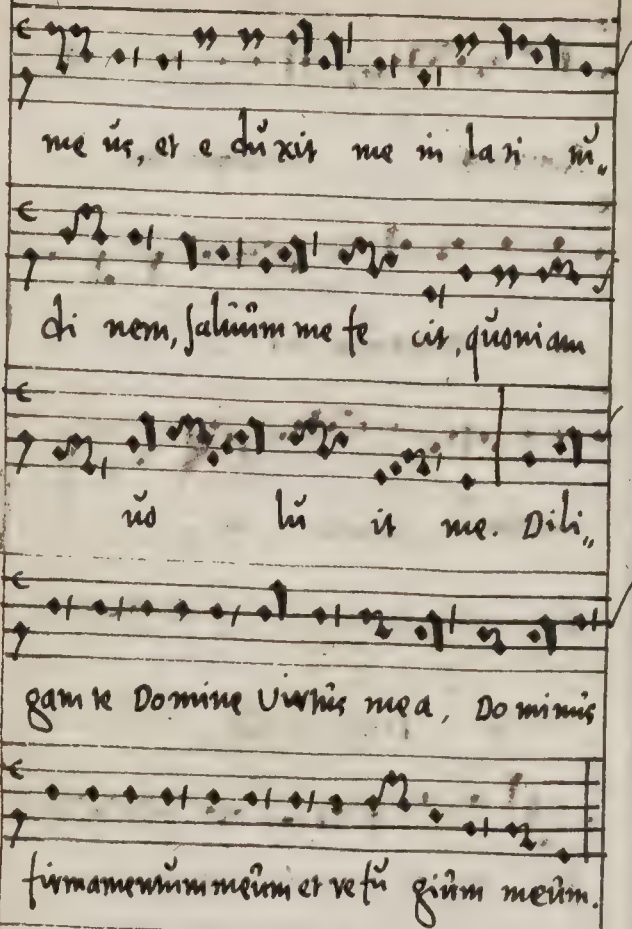 me us, et e du xit me in la ti tu„
di nem, salvum me fe cit, quoniam
vo lu it me. Dili„
gam te Domine Virtus mea, Do minus
firmamentum meum et re fu gium meum.